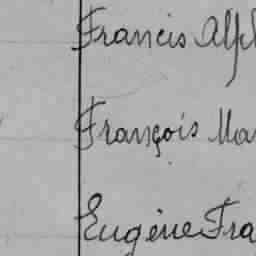 Francis Alf
François Ma
Eugène Fra